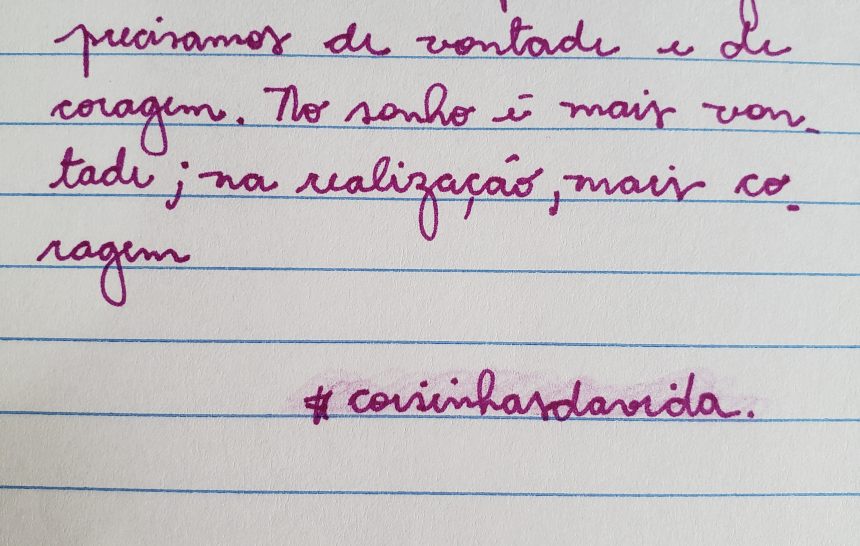 precisamos de vontade e de
coragem. No sonho é mais von-
tade; na realização, mais co-
ragem
#coisinhasdavida.